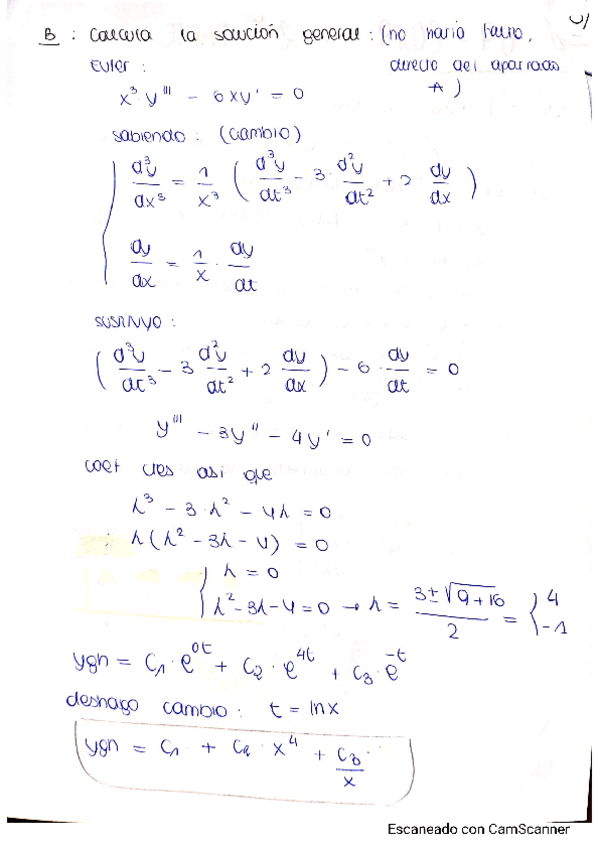 B : Calcula la solución general : (no haría falta,
Euler : directo del apartado
A)
x³ y''' - 6xy' = 0
sabiendo : (cambio)
d³y/dx³ = 1/x³ ( d³y/dt³ - 3· d²y/dt² + 2 dy/dx )
dy/dx = 1/x · dy/dt
SUSTITUYO :
( d³y/dt³ - 3 d²y/dt² + 2 dy/dx ) - 6· dy/dt = 0
y''' - 3y'' - 4y' = 0
coef ctes así que
λ³ - 3·λ² - 4λ = 0
λ(λ² - 3λ - 4) = 0
λ = 0
λ² - 3λ - 4 = 0 → λ = (3 ± √(9+16))/2 = { 4
-1
ygh = C₁·e^0t + C₂·e^4t + C₃·e^-t
deshago cambio : t = ln x
ygh = C₁ + C₂·x⁴ + C₃/x
Escaneado con CamScanner